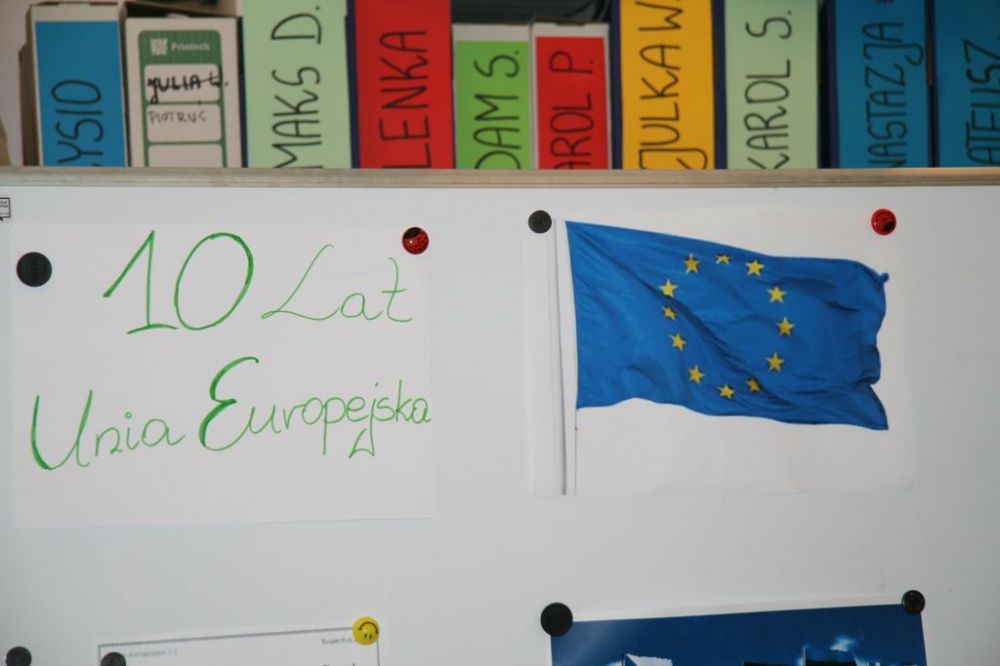 YSIO
Printech
JULIA L.
PIOTRUŚ
MAKS D.
LENKA
DAM S.
AROL P.
JULKA W.
KAROL S.
NASTAZJA
ATEUSZ
10 Lat
Unia Europejska